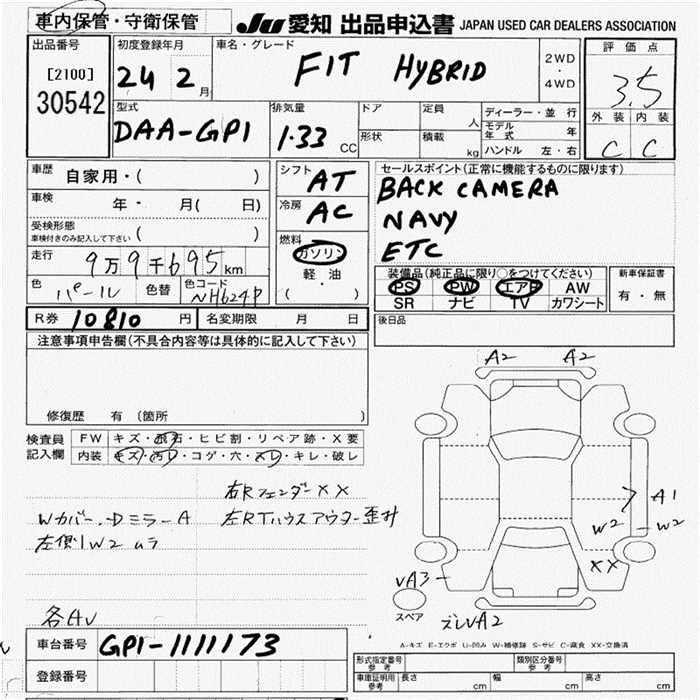 車内保管・守衛保管 JU 愛知 出品申込書 JAPAN USED CAR DEALERS ASSOCIATION
出品番号 初度登録年月 車名・グレード 評価点
[2100] 24 2月 FIT HYBRID 2WD・4WD 3.5
30542 型式 排気量 ドア 定員 人 ディーラー・並行 外装 内装
DAA-GP1 1.33 CC 形状 積載 kg モデル年式 年 C C
ハンドル 左・右
車歴 自家用・( ) シフト AT セールスポイント(正常に機能するものに限ります)
車検 年・ 月( 日) 冷房 AC BACK CAMERA
受検形態 ( ) NAVY
車検付きのみ記入して下さい 燃料 ETC
走行 9万9千695km ガソリン 装備品(純正品に限り○をつけてください) 新車保証書
色 パール 色替 色コード NH624P 軽・油 PS PW エアB AW 有・無
( ) SR ナビ TV カワシート
R券 10810 円 名変期限 月 日 後日品
注意事項申告欄(不具合内容等は具体的に記入して下さい)
修復歴 有 (箇所 )
A2 A2
検査員 FW キズ・飛石・ヒビ割・リペア跡・X要
記入欄 内装 キズ・汚レ・コゲ・穴・スレ・キレ・破レ
右Rフェンダー××
Wカバー、Dミラー A 左RTハウスアウター歪み
左側 W2 ムラ
A1
W2 W2
××
VA3
スペア
VA2
各AU
A-キズ E-エクボ U-凹み W-補修跡 S-サビ C-腐食 XX-交換済
車台番号 GP1-1111173
登録番号
形式指定番号 参考 類別区分番号 参考
車庫証明用 参考 長さ cm 幅 cm 高さ cm